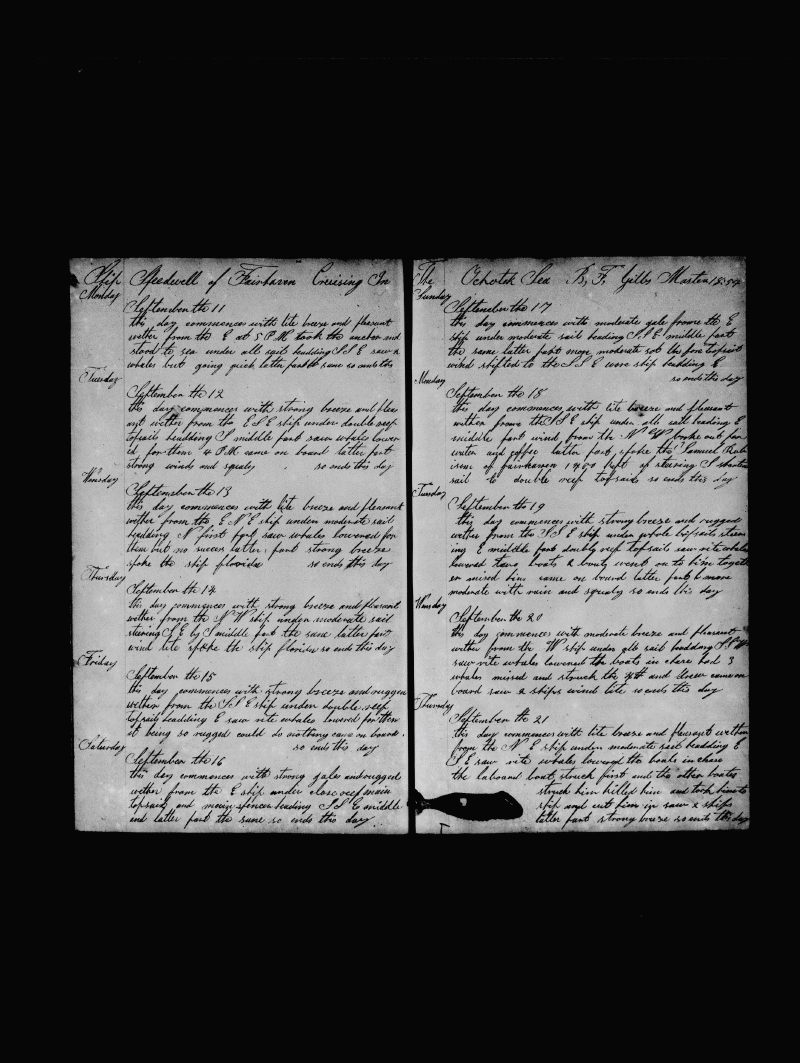 Ship Speedwell of Fairhaven Cruising In
Monday
September the 11
this day commences with lite breeze and pleasant
wether from the E at 5 P M took the ancher and
stood to sea under all sail headding S S E saw 2
whales but going quick latter part the same so ends this
Tuesday
September the 12
this day commences with strong breeze and pleas
ant wether from the E S E ship under double reep
topsails headding S middle part saw whales lower
ed for them 4 P M came on board latter part
strong winds and squaly so ends this day
Wensday
September the 13
this day commences with lite breeze and pleasant
wether from the E N E ship under moderate sail
headding N first part saw whales lowered for
them but no succes latter part strong breeze
spoke the ship florida so ends this day
Thursday
September the 14
this day commences with strong breeze and pleasant
wether from the N W ship under moderate sail
steering S E by S middle part the same latter part
wind lite spoke the ship florida so ends this day
Friday
September the 15
this day commences with strong breeze and rugged
wether from the S S E ship under double reep
topsails headding E saw rite whales lowered for them
it being so rugged could do nothing came on board
so ends this day
Saturday
September the 16
this day commences with strong gale and rugged
wether from the E ship under close reep main
topsail and main spencer heading S S E middle
and latter part the same so ends this day
The Ochotsk Sea B, F, Gibbs Master 1854
Sunday
September the 17
this day commences with moderate gale frome the E
ship under moderate sail heading S S E middle part
the same latter part more moderate sot the fore topsail
wind shifted to the S S E wore ship headding E
so ends this day
Monday
September the 18
this day commences with lite breeze and pleasant
wither frome the S S E ship under all sail heading E
middle part wind from the N W broke out for
water and coffee latter part spoke the Samuel Rob
ison of fairhaven 1400 steering S
sail to double reep topsails so ends this day
Tuesday
September the 19
this day commences with strong breeze and rugged
wether from the S S E ship under whole topsails steer
ing E middle part doubly reep topsails saw rite whales
lowered tawo boats 2 bouts went on to him togeth
er missed him came on board latter part more
moderate with rain and squaly so ends this day
Wensday
September the 20
this day commences with moderate breeze and pleasant
wither from the W ship under all sail headding S S W
saw rite whales lowered the boats in chase had 3
whales missed and struck the 4th and drew came on
board saw 2 ships wind lite so ends this day
Thursday
September the 21
this day commences with lite breeze and pleasant wether
from the N E ship under moderate sail headding E
S E saw rite whales lowered the boats in chase
the laboard boat struck first and the other boates
struck him killed him and took him to
ship and cut him in saw 2 ships
latter part strong breeze so ends this day